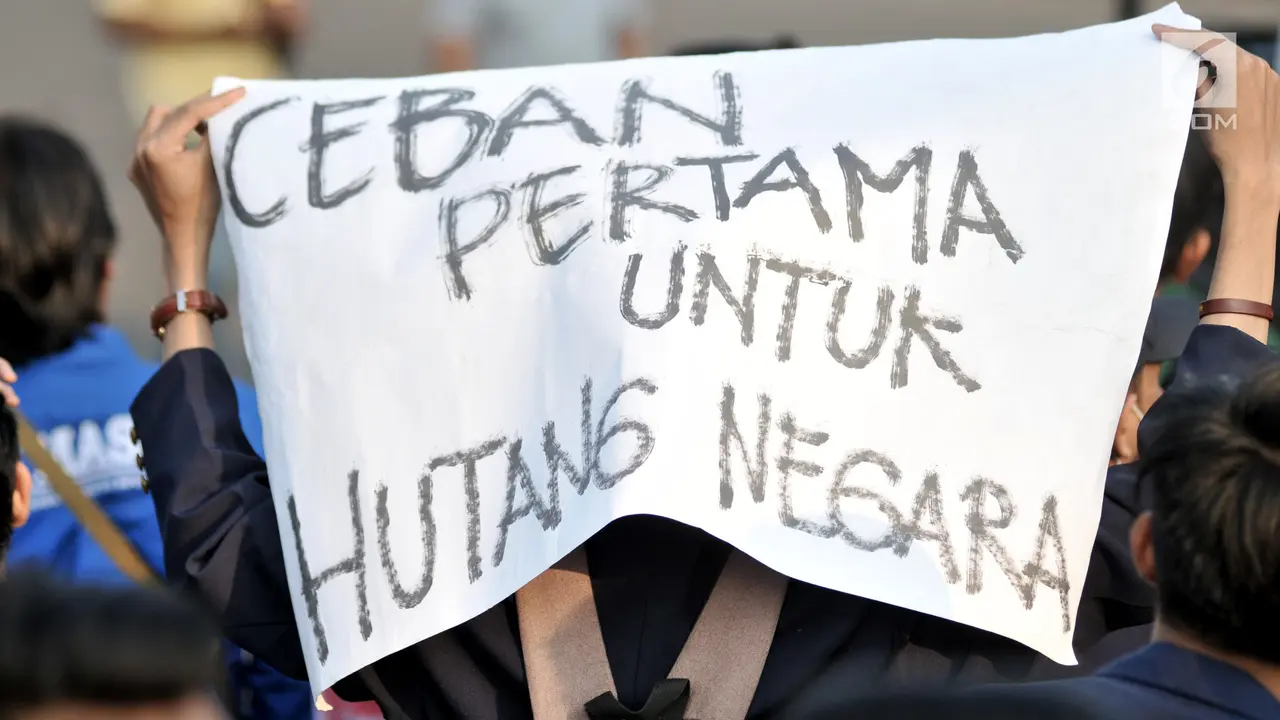 CEBAN
PERTAMA
UNTUK
HUTANG NEGARA